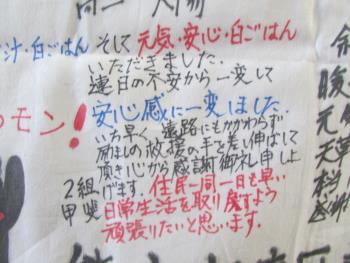 汁・白ごはん そして 元気・安心・白ごはん
いただきました。
連日の不安から一変して
安心感に一変しました。
モン!
いち早く、遠路にもかかわらず
励ましの救援の手を差し伸ばして
頂き心から感謝御礼申しよ
2組
げます。住民一同一日も早い
甲斐
日常生活を取り戻すよう
頑張りたいと思います。
暖
元
天草